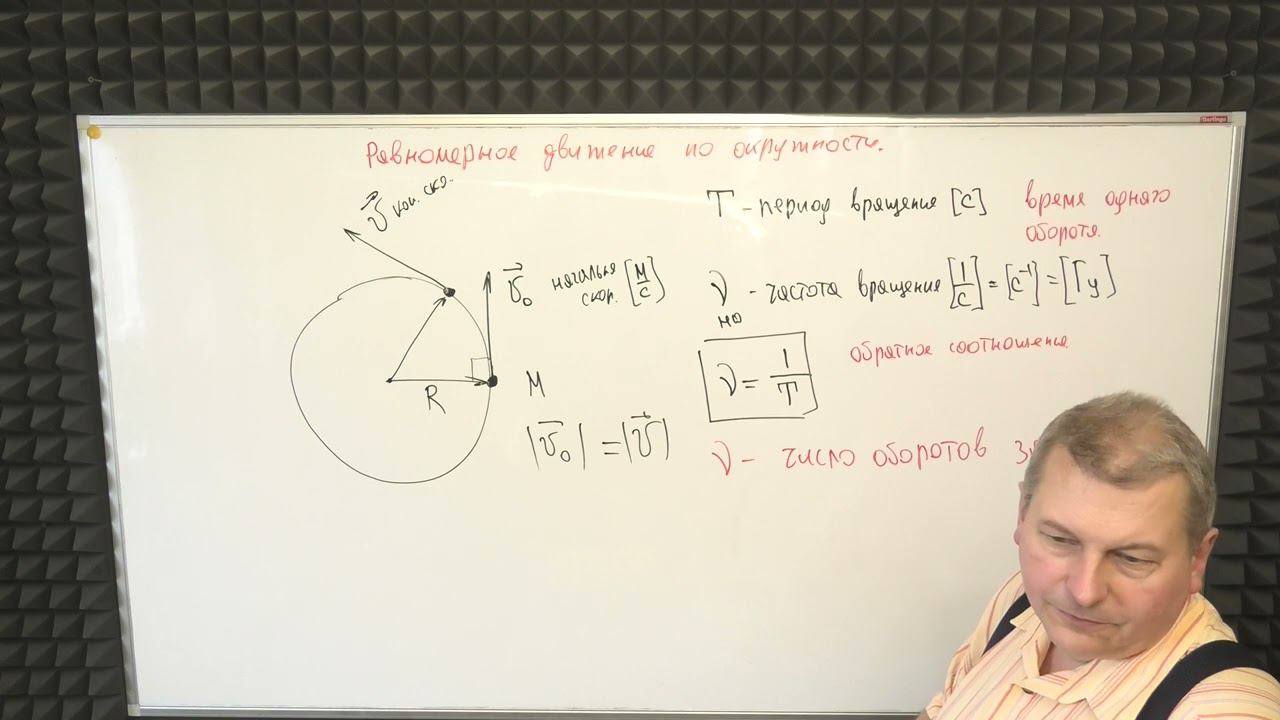 Berlingo
Равномерное движение по окружности.
v⃗ кон. ско.
v⃗₀ начальная скор. [м/с]
R
M
|v⃗₀| = |v⃗|
T - период вращение [с] время одного оборота.
ν - частота вращение [1/с] = [с⁻¹] = [Гц]
ню
ν = 1/T
обратное соотношение
ν - число оборотов з